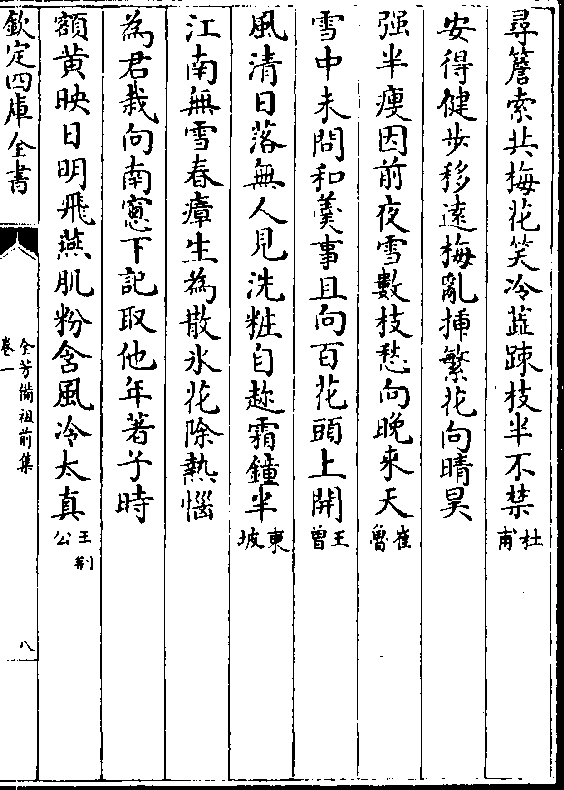 尋簷索共梅花笑冷蘂踈枝半不禁杜甫
安得健步移遠梅亂揷繁花向晴昊
强半瘦因前夜雪數枝愁向晚來天崔魯
雪中未問和羮事且向百花頭上開王曾
風清日落無人見洗粧自趂霜鐘半東坡
江南無雪春瘴生為散氷花除熱惱
為君栽向南窻下記取他年著子時
額黄映日明飛燕肌粉含風冷太真王荆公
欽定四庫全書
全芳備祖前集
卷一
八